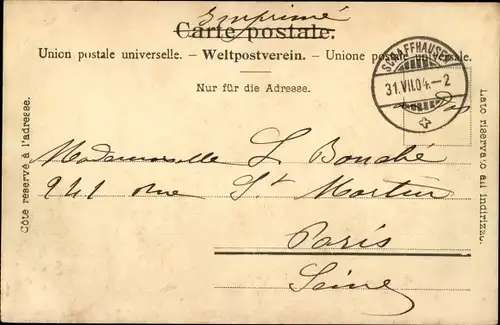 Imprimé
Carte postale.
Union postale universelle. – Weltpostverein. – Unione postale universale.
Nur für die Adresse.
SCHAFFHAUSEN
31.VII.04.–2
Côte reservé à l'adresse.
Lato riservato all indirizzo.
Mademoiselle L. Bouché
241 rue St Martin
Paris
Seine